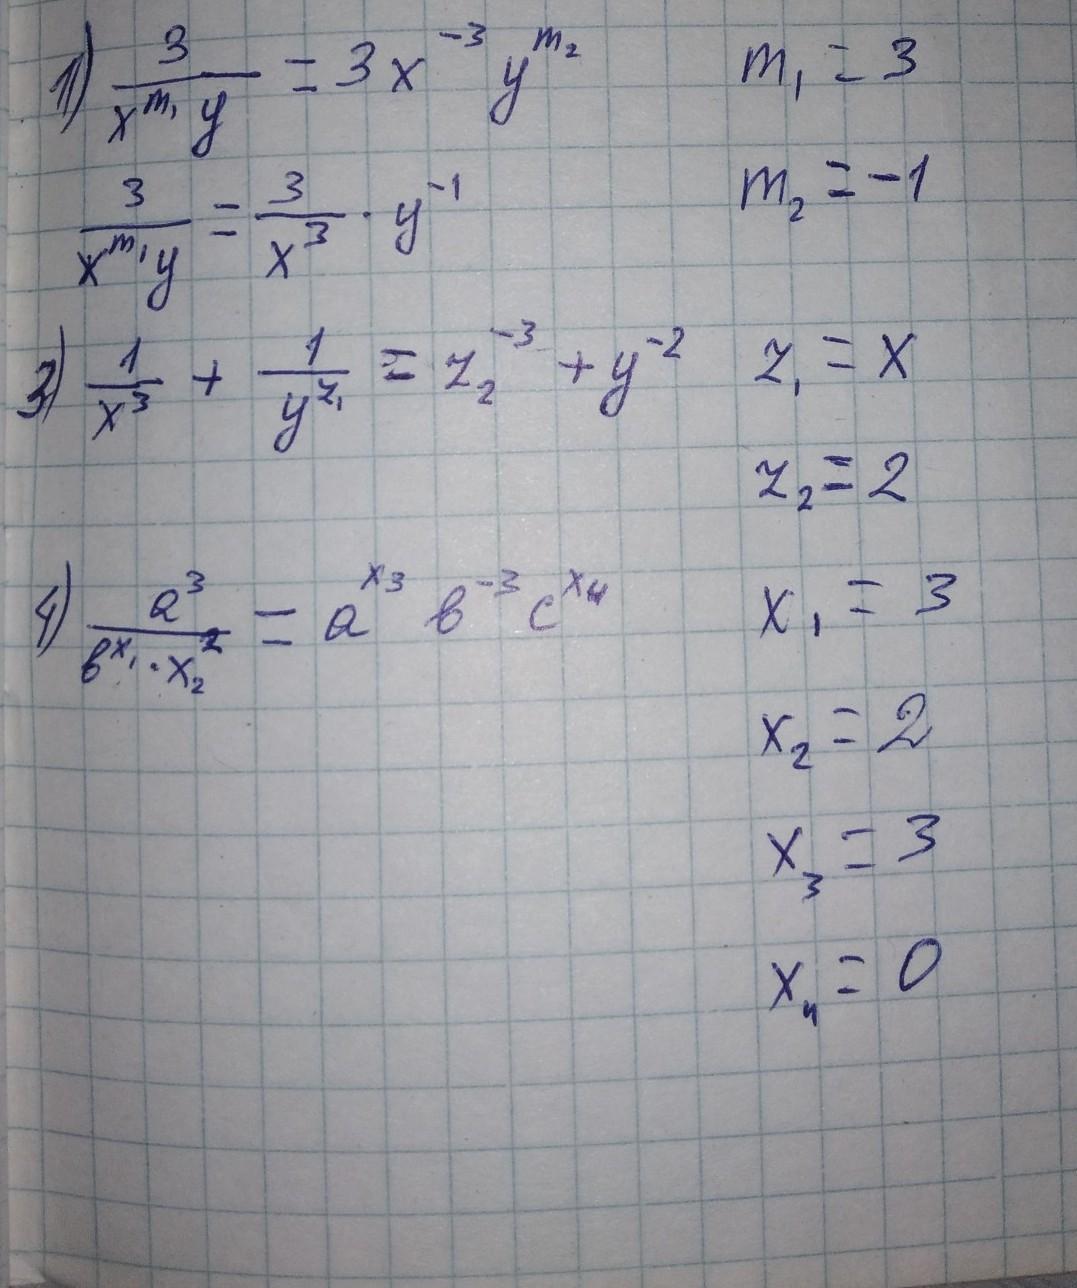 1) 3/(x^m₁ y) = 3x^-3 y^m₂ m₁ = 3
3/(x^m₁ y) = 3/x^3 · y^-1 m₂ = -1
3) 1/x^3 + 1/y^z₁ = z₂^-3 + y^-2 z₁ = x
z₂ = 2
4) a^3/(b^x₁ · x₂^2) = a^x₃ b^-3 c^x₄ x₁ = 3
x₂ = 2
x₃ = 3
x₄ = 0